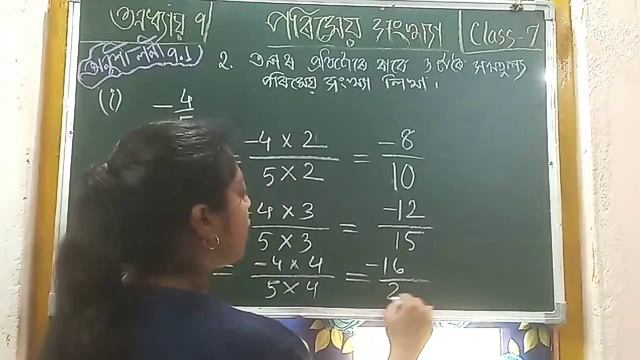 অধ্যায় ৭ পৰিমেয় সংখ্যা Class-7
অনুশীলনী ৭.1 2. তলৰ প্ৰতিটোৰে বাবে ৩ টাকৈ সমতুল্য
পৰিমেয় সংখ্যা লিখা।
(i) -4/5
= -4 × 2 / 5 × 2 = -8/10
4 × 3 / 5 × 3 = -12/15
= -4 × 4 / 5 × 4 = -16/2